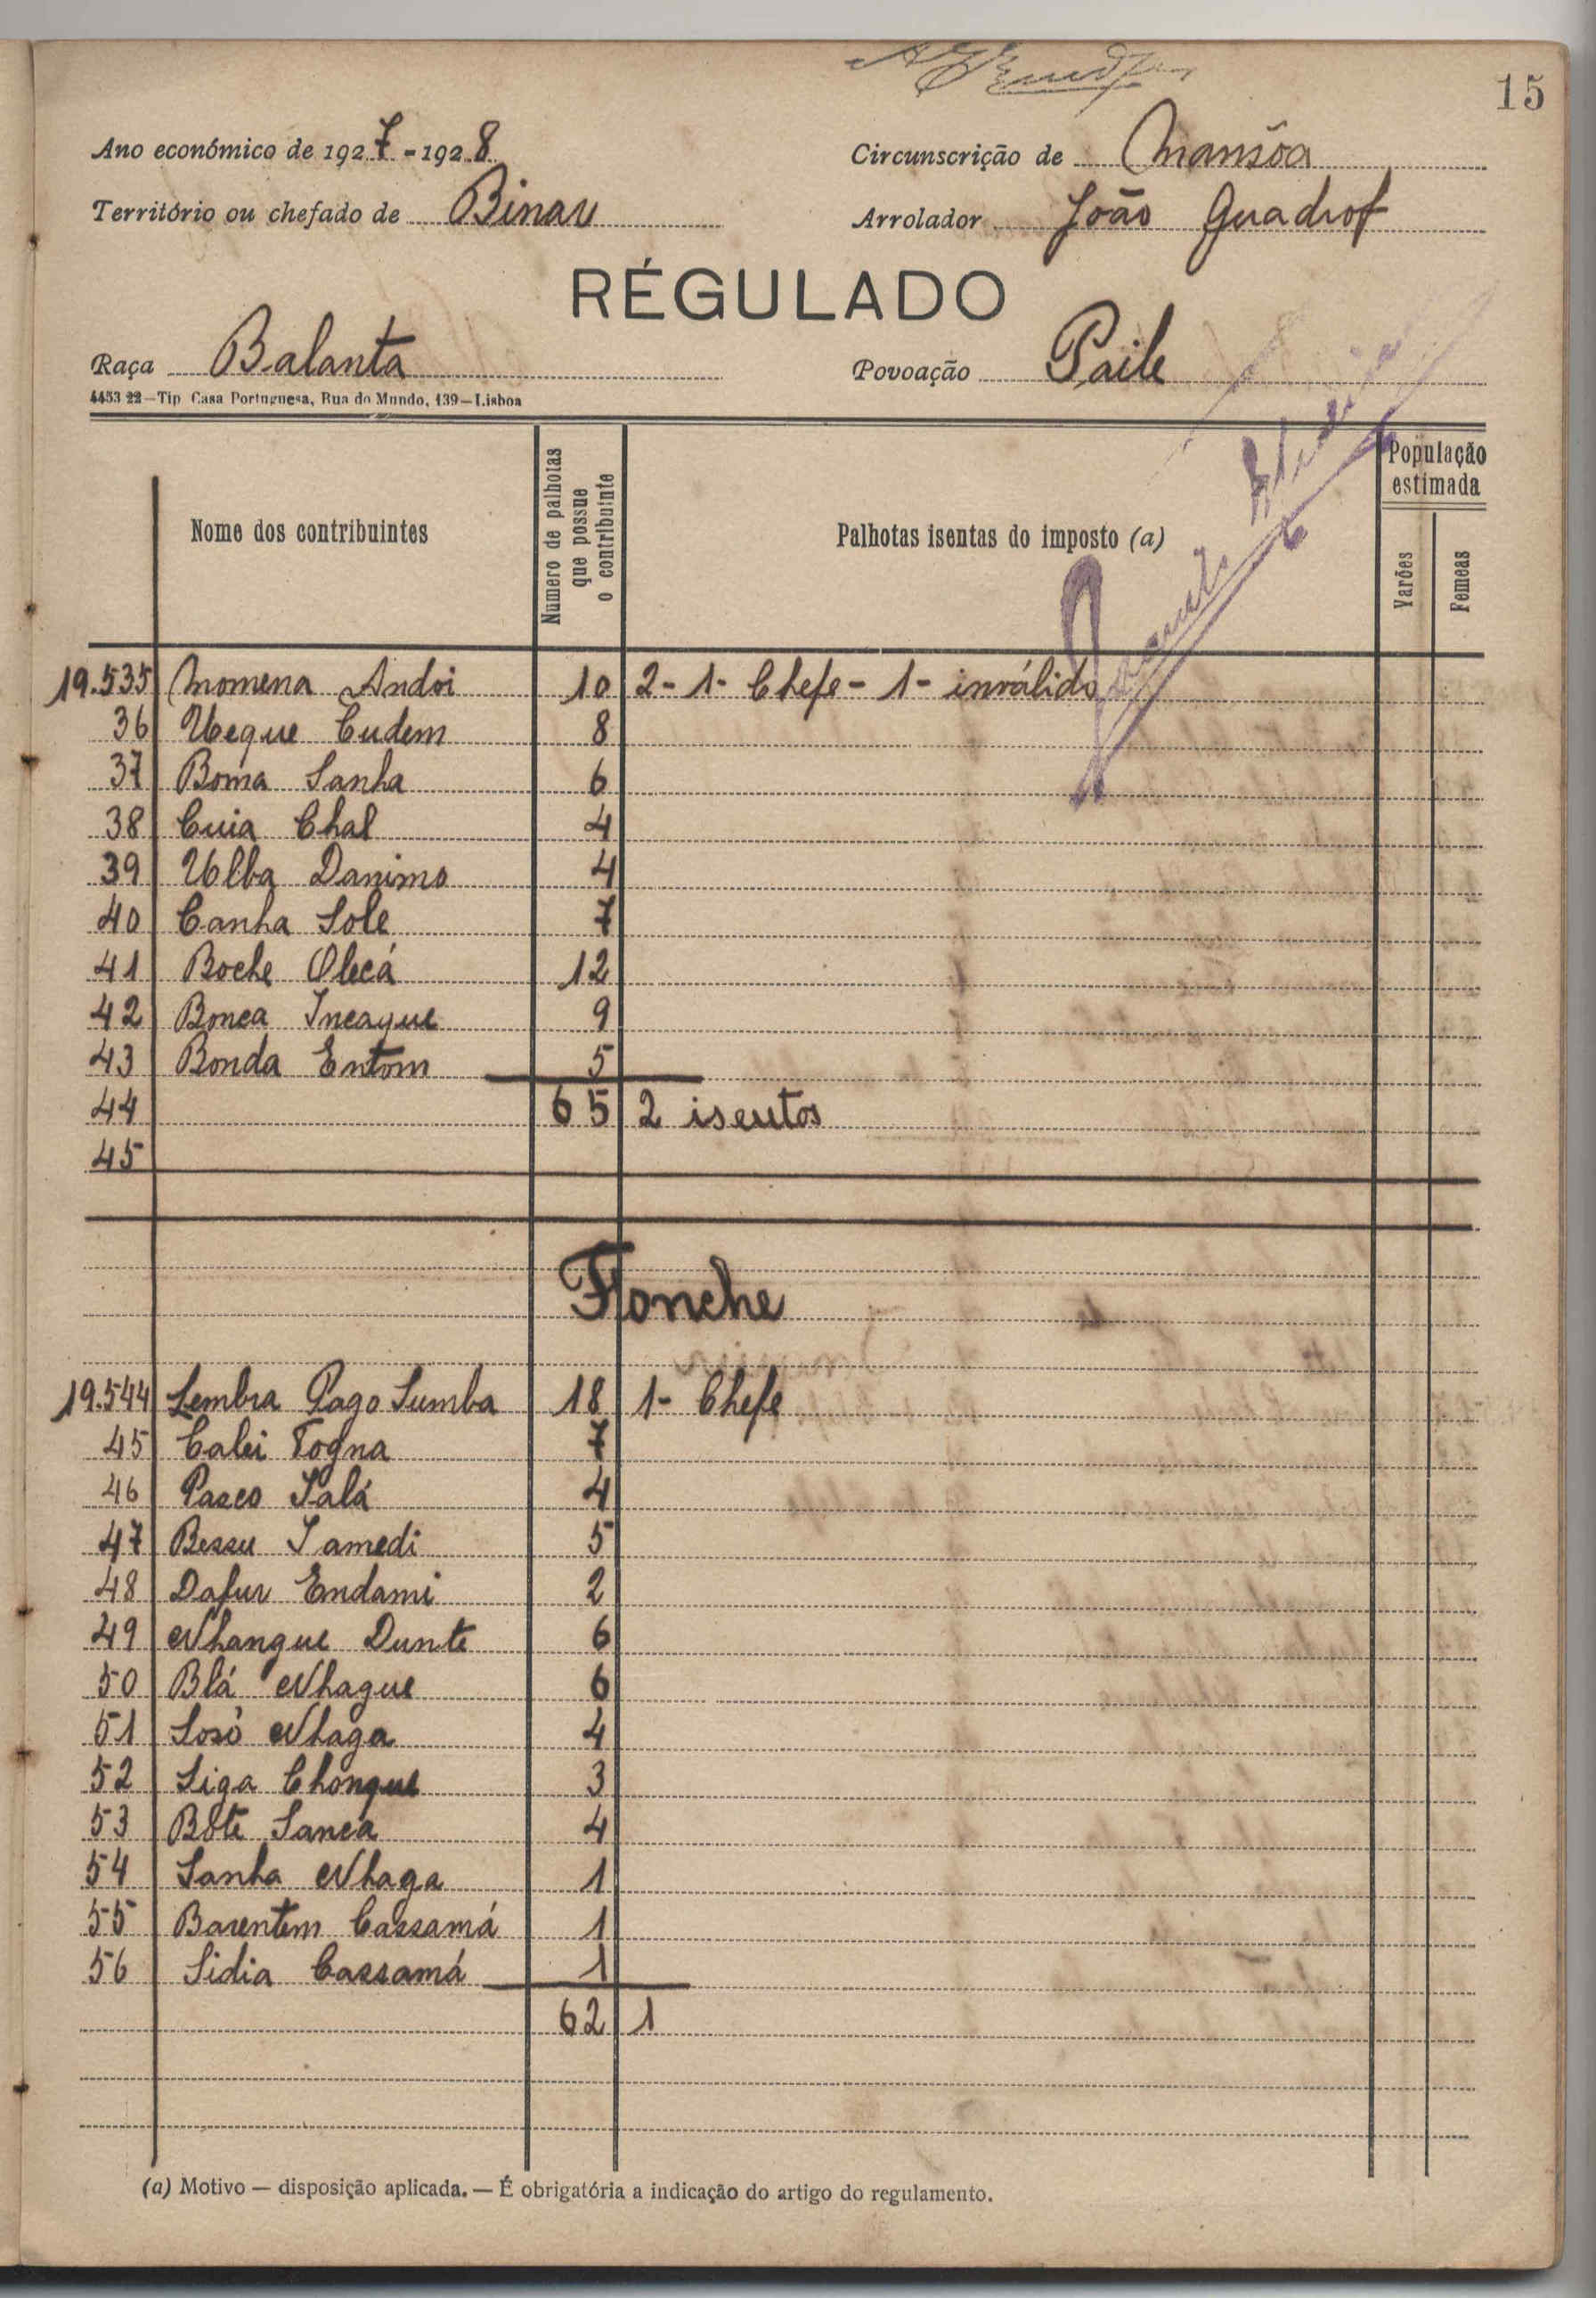 15
Ano económico de 1927-1928
Circunscrição de Mansôa
Território ou chefado de Binar
Arrolador João Quadrof
RÉGULADO
Raça Balanta
Povoação Paile
4453 22—Tip Casa Portuguesa, Rua do Mundo, 139—Lisboa
Nome dos contribuintes
Número de palhotas que possue o contribuinte
Palhotas isentas do imposto (a)
População estimada
Varões
Femeas
19.535 Momena Andoi 10 2-1-Chefe-1-inválido
36 Ueque Cudem 8
37 Boma Sanha 6
38 Cuia Chal 4
39 Ulba Danimo 4
40 Canha Sole 7
41 Boche Olecá 12
42 Bonca Incaque 9
43 Bonda Entom 5
44 65 2 isentos
45
Fonche
19.544 Lembra Pago Sumba 18 1-Chefe
45 Calei Togna 7
46 Pasco Salá 4
47 Bessu Samedi 5
48 Dafur Endami 2
49 Nhangue Dunte 6
50 Blá Nhague 6
51 Sosó Nhaga 4
52 Siga Chongue 3
53 Bóte Sanca 4
54 Sanha Nhaga 1
55 Barentem Cassamá 1
56 Sidia Cassamá 1
62 1
(a) Motivo — disposição aplicada. — É obrigatória a indicação do artigo do regulamento.